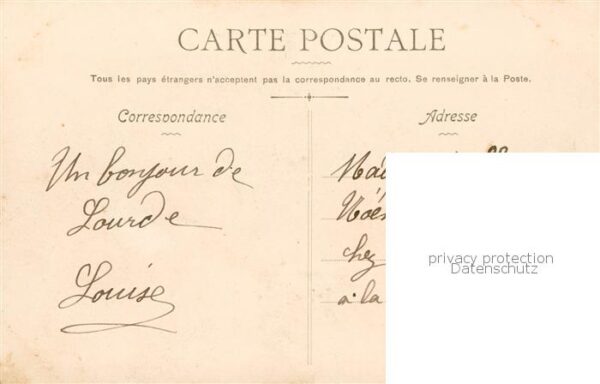 CARTE POSTALE
Tous les pays étrangers n'acceptent pas la correspondance au recto. Se renseigner à la Poste.
Correspondance
Adresse
Un bonjour de
Lourde
Louise
chez
à la
privacy protection
Datenschutz